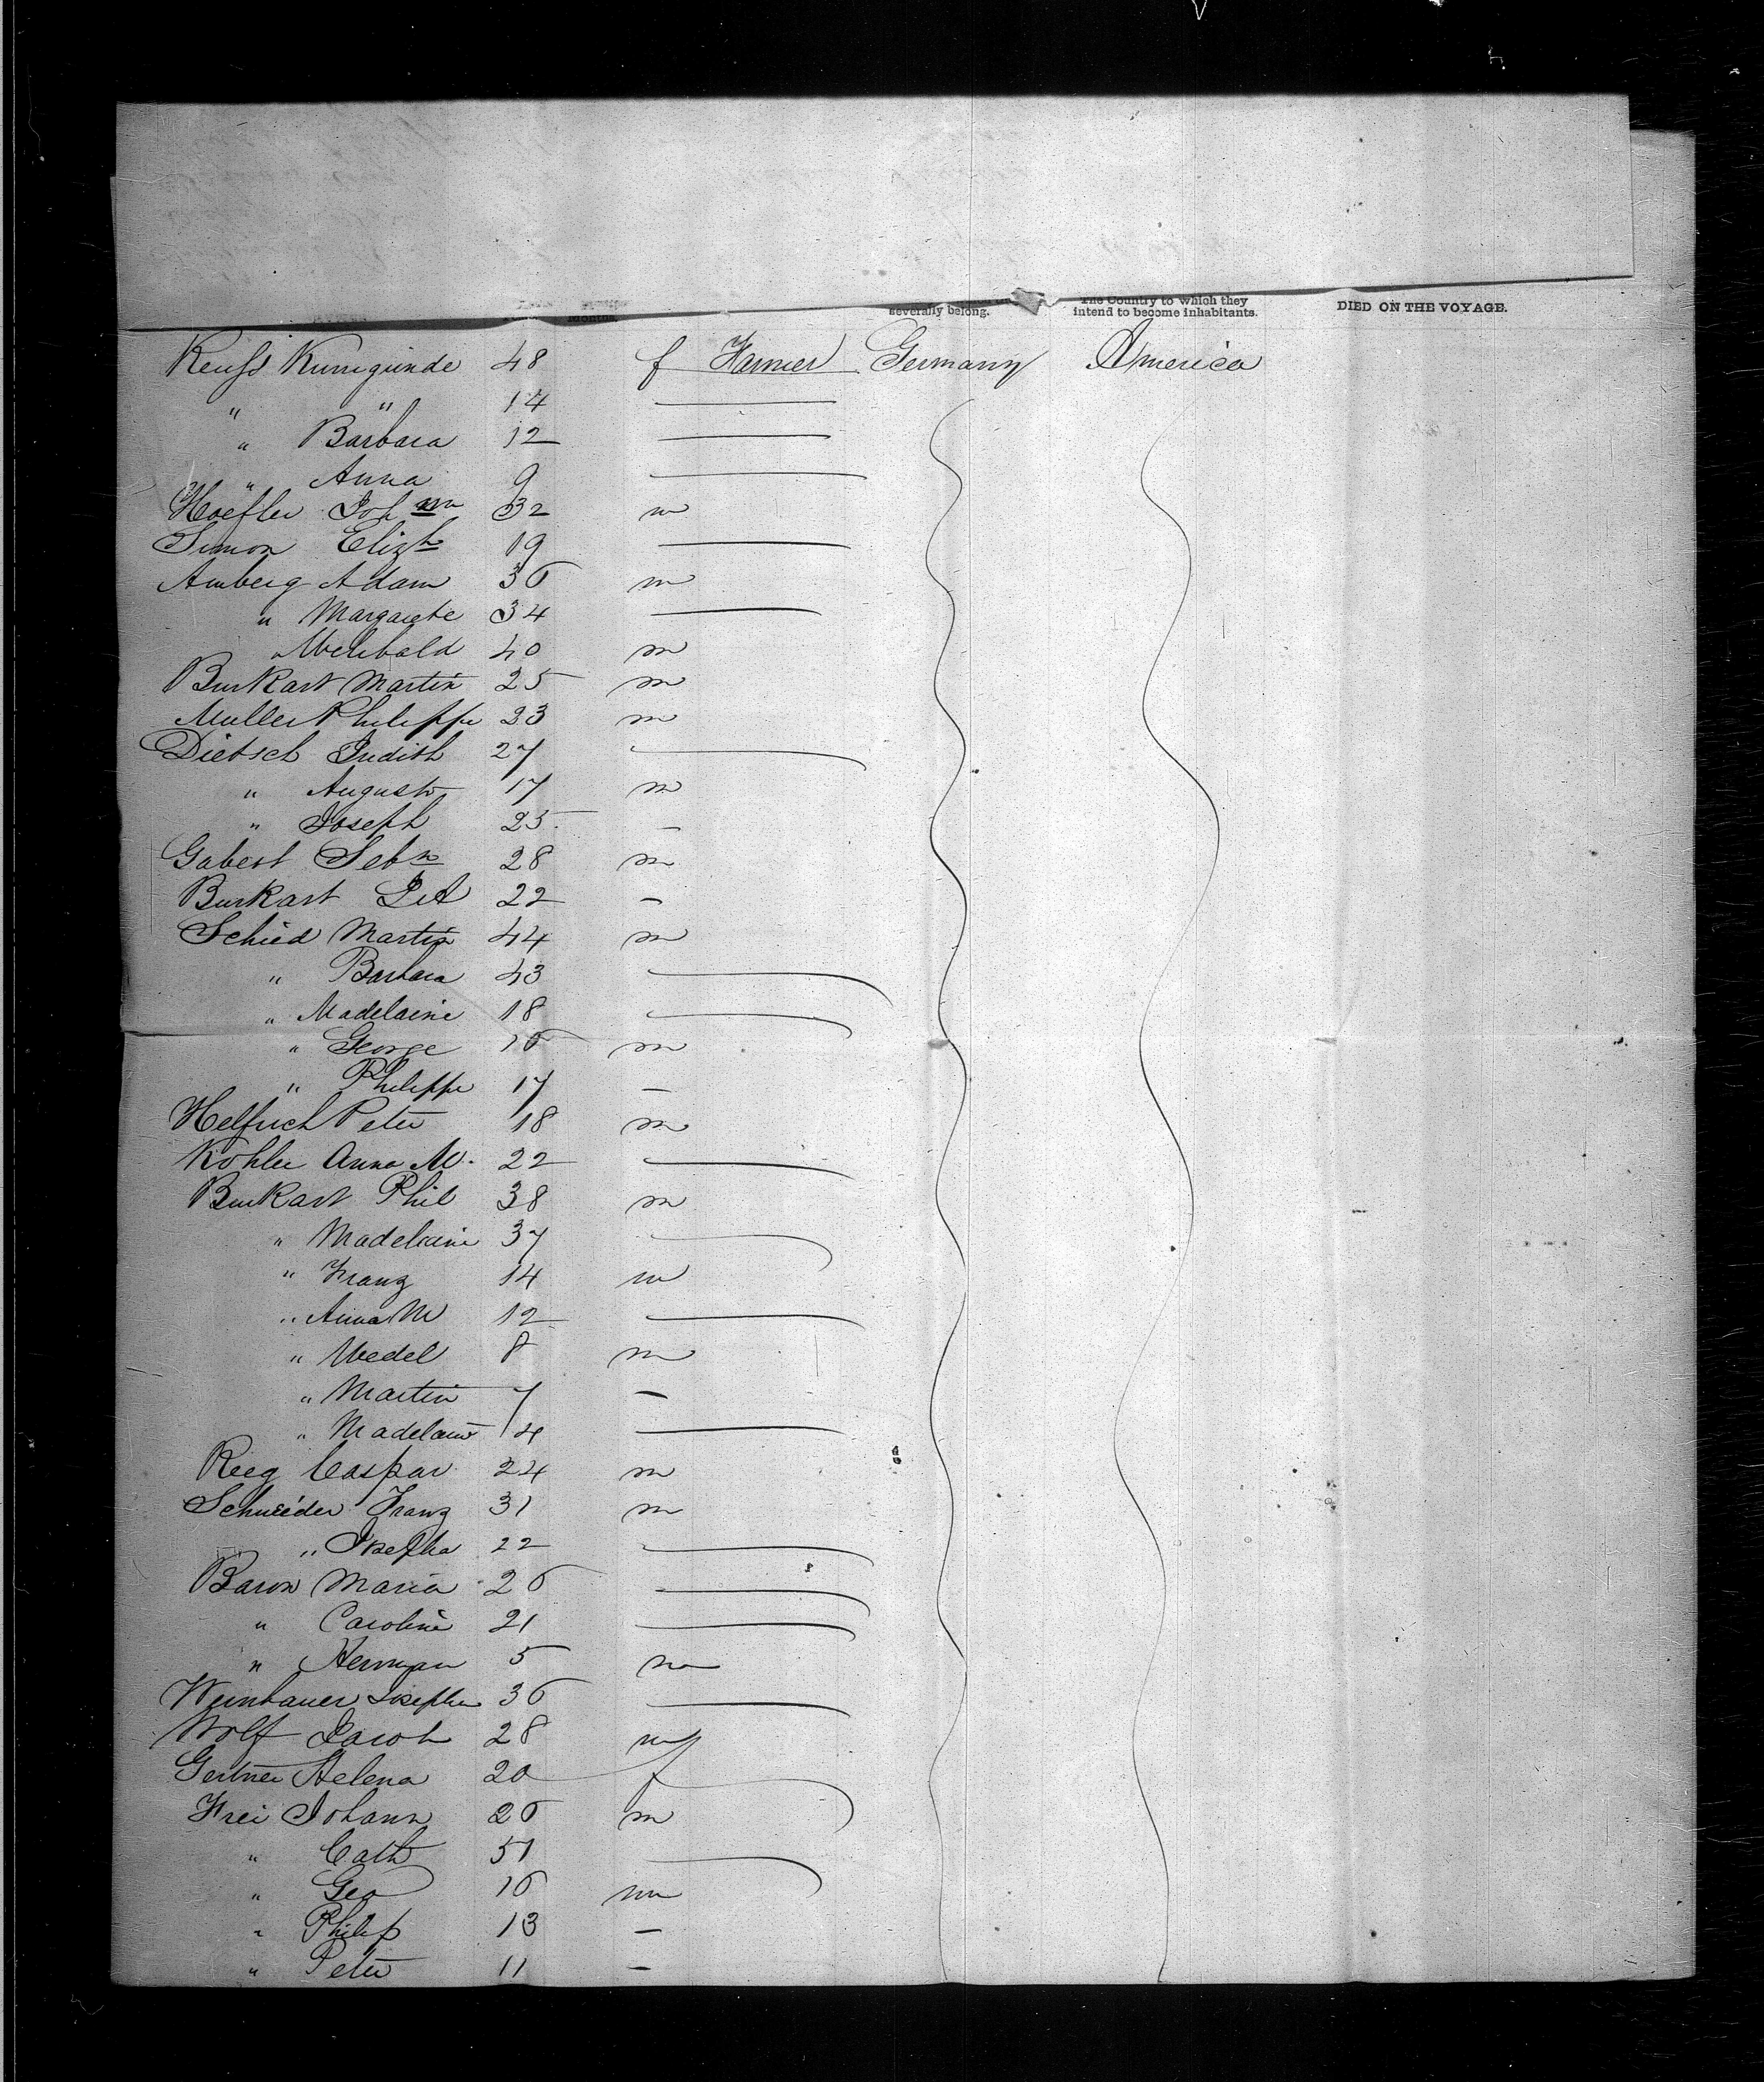 severally belong.
The Country to which they
intend to become inhabitants.
DIED ON THE VOYAGE.
Reuss Kunigunde 48 f Farmer Germany America
" " 14
" Barbara 12
" Anna 9
Hoefler Joh 32 m
Simon Elizth 19
Amberg Adam 36 m
" Margarethe 34
" 40 m
Burkart Martin 25 m
Muller Philippe 23 m
Dietsch Judith 27
" August 17 m
" Joseph 25 –
Gabert Sebn 28 m
Burkart 22 –
Schied Martin 44 m
" Barbara 43
" Madelaine 18
" George 16 m
" Philippe 17 –
Helfrich Peter 18 m
Kohler Anna M. 22
Burkart Phil 38 m
" Madelaine 37
" Franz 14 m
" Anna M 12
" 8 m
" Martin 7 –
" Madelaine
Reeg Caspar 24 m
Schneider Franz 31 m
" Josepha 22
Baron Maria 26
" Caroline 21
" Herman 5 m
Weinbauer Josepha 36
Wolf Jacob 28 m
Gertner Helena 20 f
Frei Johann 26 m
" Cath 51
" Geo 16 m
" Philip 13 –
" Peter 11 –